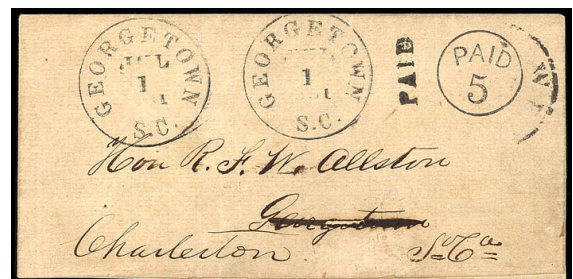 GEORGETOWN
JUL
1
S.C.
GEORGETOWN
1
S.C.
PAID
PAID
5
Hon R. F. W. Allston
Georgetown
Charleston So Ca